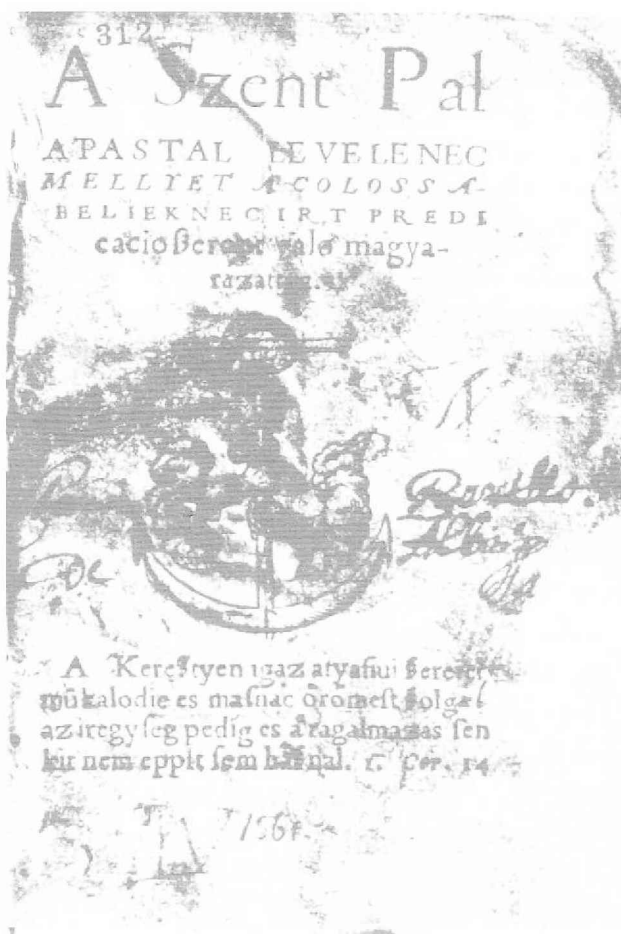 312
A Szent Pal
APASTAL LEVELENEC
MELLYET A COLOSSA-
BELIEKNEC IRT PREDI
cacio ßerent valo magya-
razattya.
A Kereſtyen igaz atyafiui ßeretet
mûkalodie es maſnac ôrômeſt ßolgal
az iregyſeg pedig es a ragalmazas ſen
kit nem eppit ſem haſnal. 1. Cor. 14